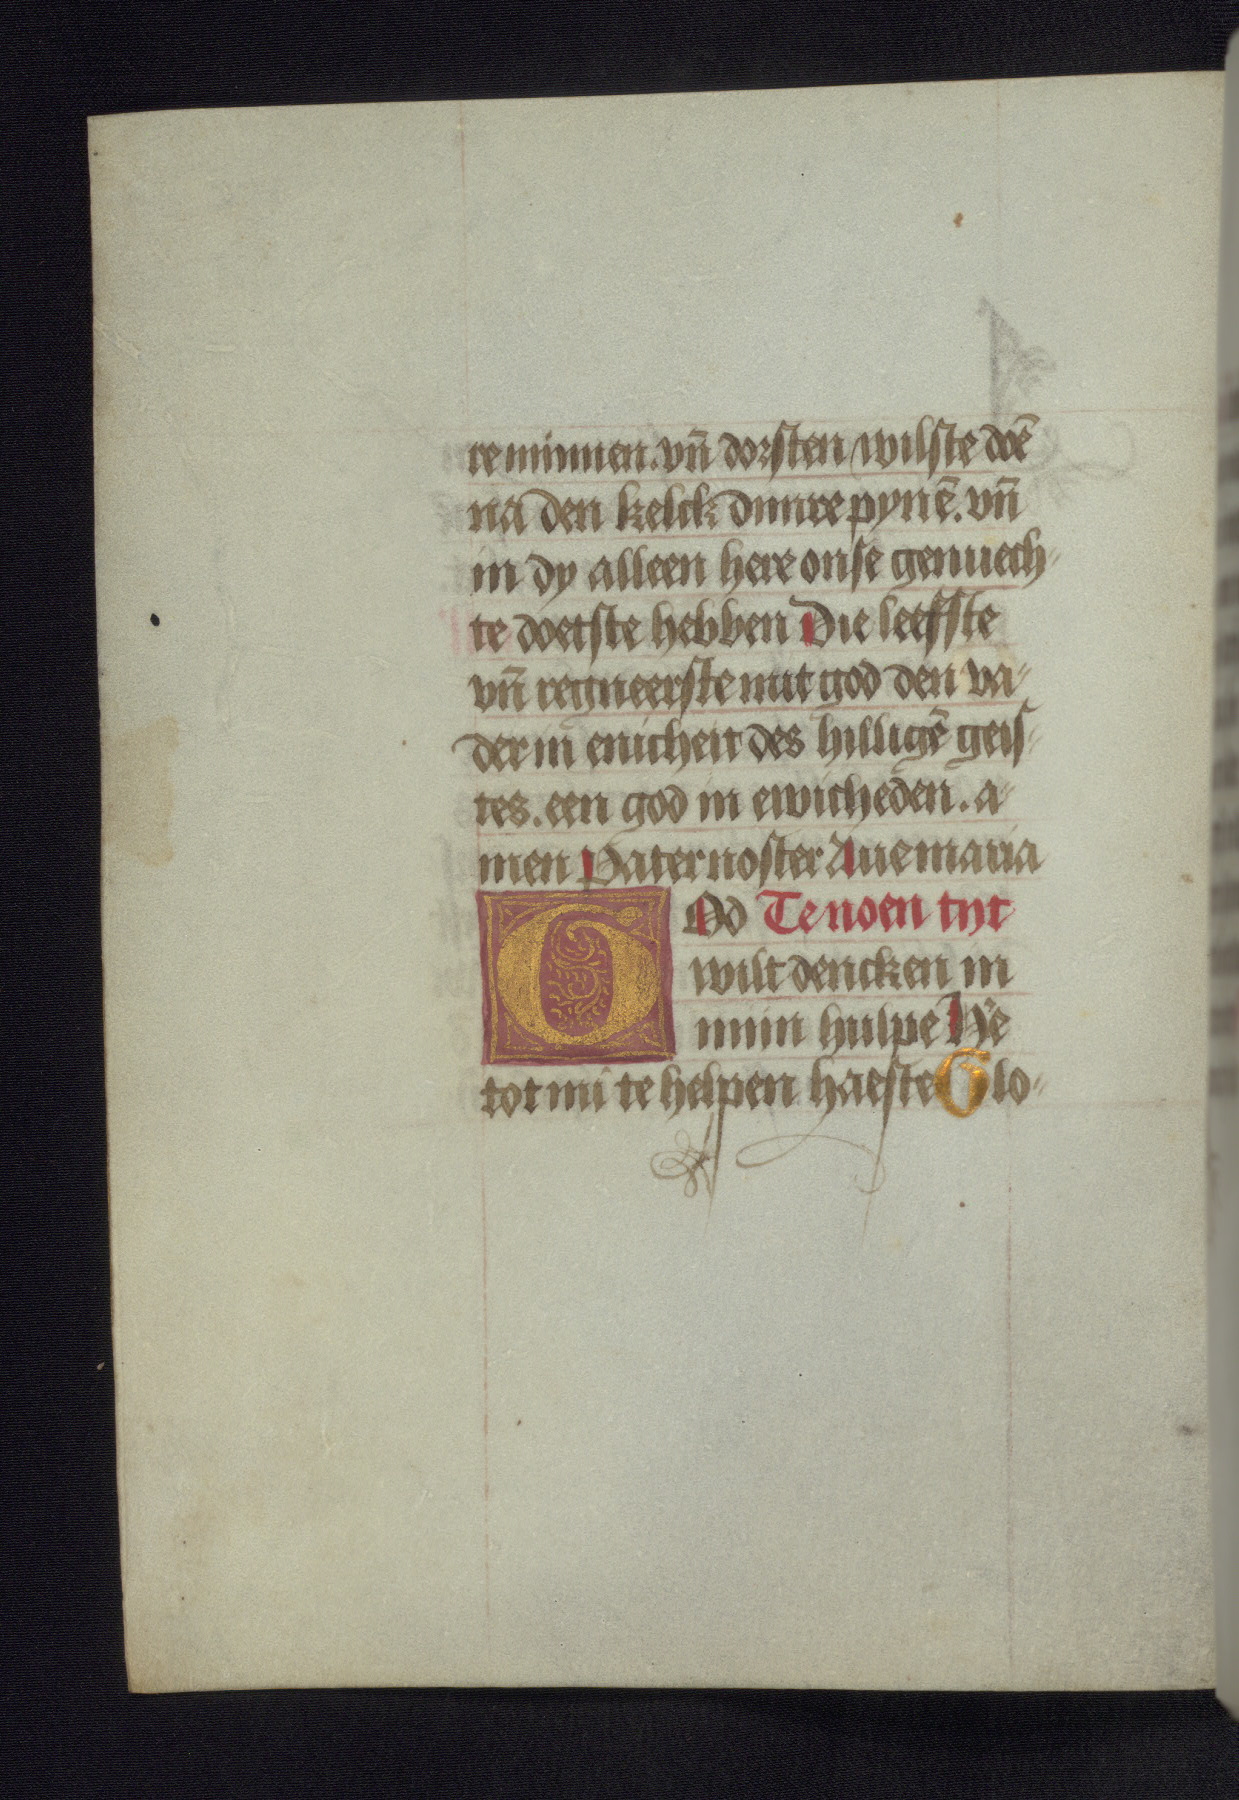 re minnen. vñ dorsten wilste doē
na den kelck dinre pynē. vñ
in dy alleen here onse genuech-
te doetste hebben Die leefste
vñ regneerste mit god den va-
der in enicheit des hilligē geis-
tes. een god in ewicheden. a-
men Pater noster Aue maria
GOd Te noen tyt
wilt dencken in
miin hulpe He
tot mi te helpen haeste Glo-